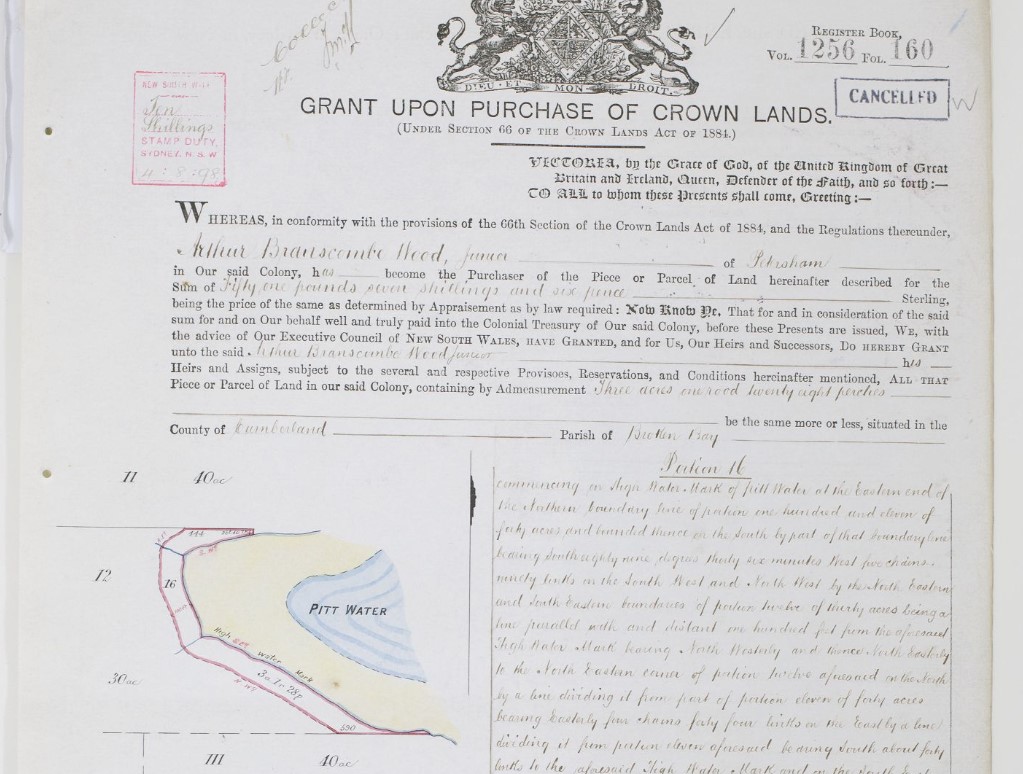 DIEU · ET MON DROIT.
REGISTER BOOK,
VOL. 1256 FOL. 160
CANCELLED
NEW SOUTH WALES
Ten
Shillings
STAMP DUTY.
SYDNEY. N. S. W
4 : 8 : 98
GRANT UPON PURCHASE OF CROWN LANDS.
(UNDER SECTION 66 OF THE CROWN LANDS ACT OF 1884.)
VICTORIA, by the Grace of God, of the United Kingdom of Great
Britain and Ireland, Queen, Defender of the Faith, and so forth:—
TO ALL to whom these Presents shall come, Greeting:—
WHEREAS, in conformity with the provisions of the 66th Section of the Crown Lands Act of 1884, and the Regulations thereunder,
Arthur Branscombe Wood, Junior of Petersham
in Our said Colony, has become the Purchaser of the Piece or Parcel of Land hereinafter described for the
Sum of Fifty one pounds seven shillings and six pence Sterling,
being the price of the same as determined by Appraisement as by law required: Now Know Ye, That for and in consideration of the said
sum for and on Our behalf well and truly paid into the Colonial Treasury of Our said Colony, before these Presents are issued, WE, with
the advice of Our Executive Council of NEW SOUTH WALES, HAVE GRANTED, and for Us, Our Heirs and Successors, DO HEREBY GRANT
unto the said Arthur Branscombe Wood Junior his
Heirs and Assigns, subject to the several and respective Provisoes, Reservations, and Conditions hereinafter mentioned, ALL THAT
Piece or Parcel of Land in our said Colony, containing by Admeasurement Three acres one rood twenty eight perches
be the same more or less, situated in the
County of Cumberland Parish of Broken Bay
Portion 16
commencing on High Water Mark of Pitt Water at the Eastern end of
the Northern boundary line of portion one hundred and eleven of
forty acres and bounded thence on the South by part of that boundary line
bearing South eighty nine degrees thirty six minutes West five chains
ninety links on the South West and North West by the North Eastern
and South Eastern boundaries of portion twelve of thirty acres being a
line parallel with and distant one hundred feet from the aforesaid
High Water Mark bearing North Westerly and thence North Easterly
to the North Eastern corner of portion twelve aforesaid on the North
by a line dividing it from part of portion eleven of forty acres
bearing Easterly four chains forty four links on the East by a line
dividing it from portion eleven aforesaid bearing South about forty
links to the aforesaid High Water Mark and on the South East
11 40ac
444
12
16
PITT WATER
High Water Mark
3a. 1r. 28p
30ac
590
111 40ac